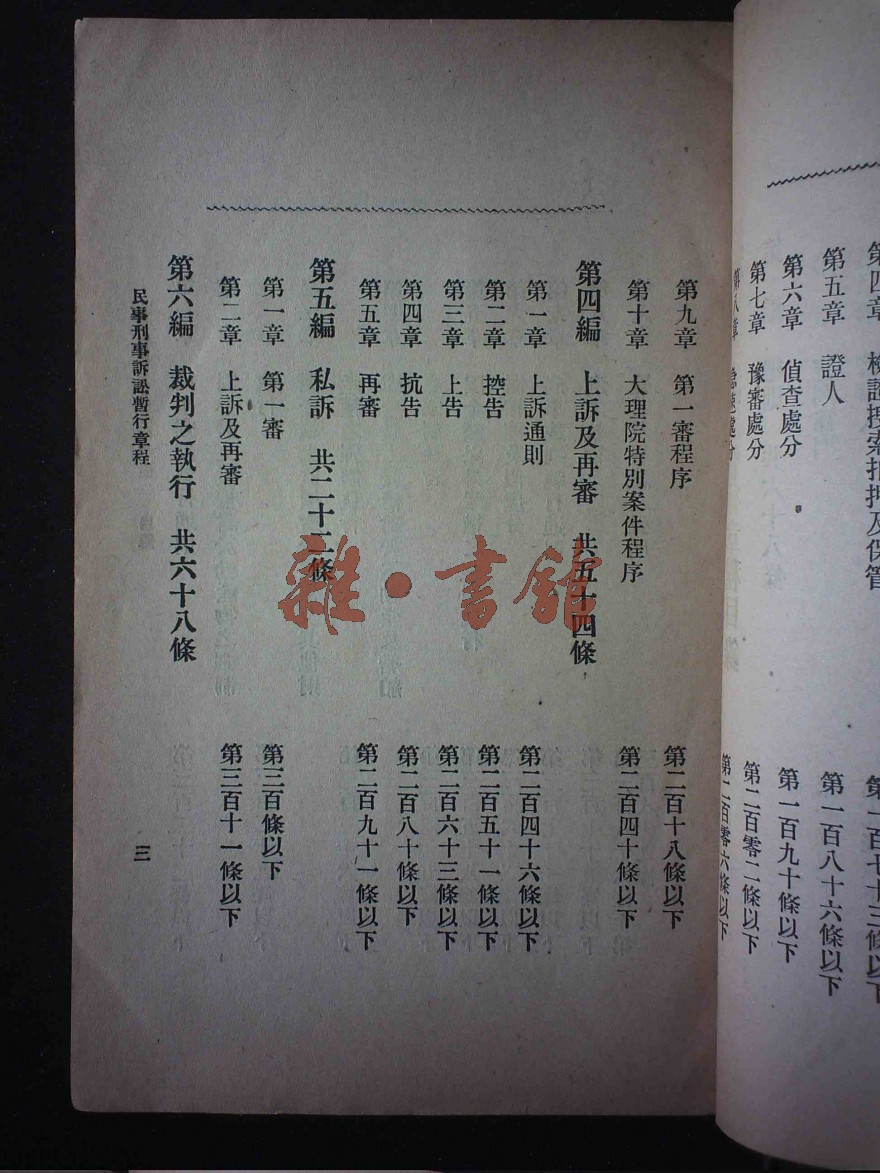 第四章 檢證搜索扣押及保管 第一百七十三條以下
第五章 證人 第一百八十六條以下
第六章 偵查處分 第一百九十條以下
第七章 豫審處分 第二百零二條以下
第八章 急速處分 第二百零六條以下
第九章 第一審程序 第二百十八條以下
第十章 大理院特別案件程序 第二百四十條以下
第四編 上訴及再審 共五十四條
第一章 上訴通則 第二百四十六條以下
第二章 控告 第二百五十一條以下
第三章 上告 第二百六十三條以下
第四章 抗告 第二百八十條以下
第五章 再審 第二百九十一條以下
第五編 私訴 共二十二條
第一章 第一審 第三百條以下
第二章 上訴及再審 第三百十一條以下
第六編 裁判之執行 共六十八條
民事刑事訴訟暫行章程 三
雜·書館